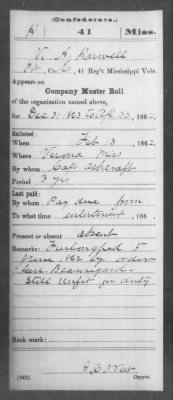 (Confederate.)
H 41 Miss.
V. A. Harwell
Pvt, Co. C, 41 Reg't Mississippi Vols.
Appears on
Company Muster Roll
of the organization named above,
for Dec 31 1862 to 186
Enlisted:
When Feb 13, 1862
Where Verona Miss
By whom Capt Ashcraft
Period 3 yrs
Last paid:
By whom Pay due from
To what time enlistment, 186 .
Present or absent absent
Remarks: Furloughed 5
June 1862 by order
Genl Beauregard
still unfit for duty
Book mark:
(642) Copyist.